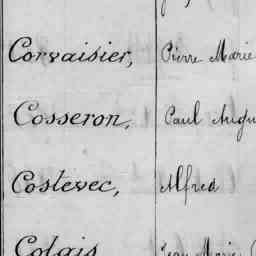 Corvaisier, Pierre Marie
Cosseron, Paul Augu
Costevec, Alfred
Cotais Jean Marie